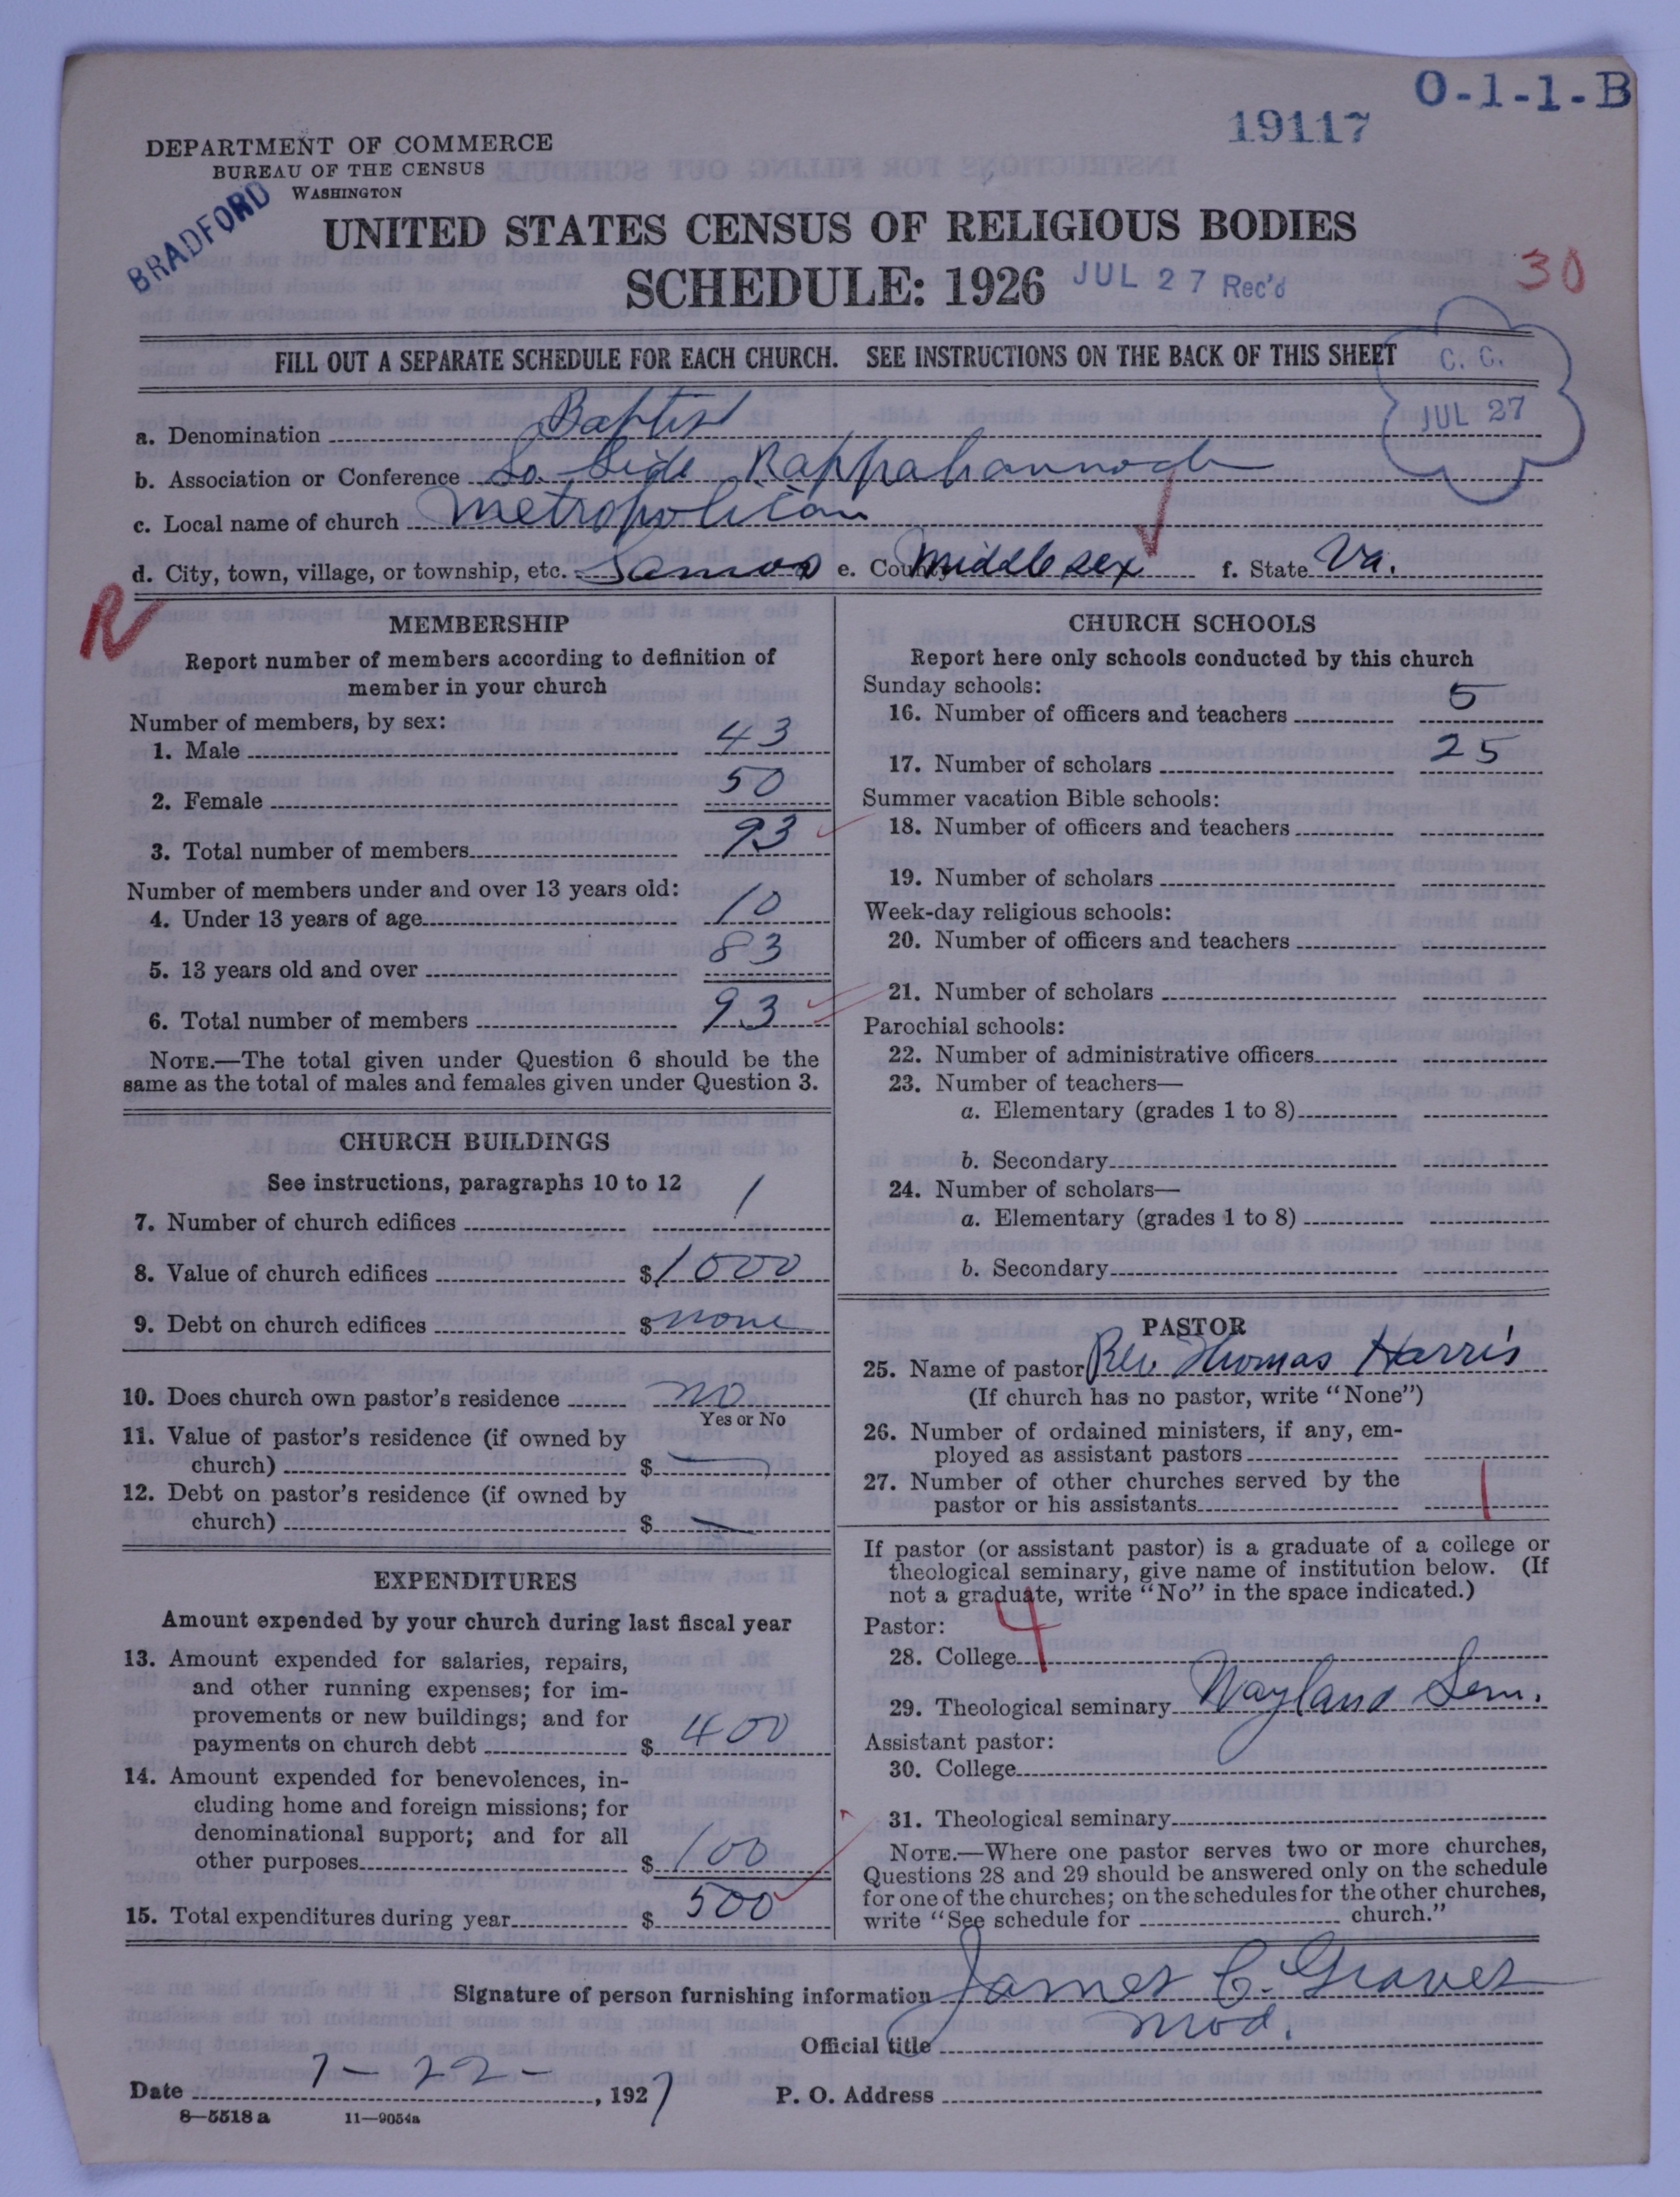 O-1-1-B
19117
DEPARTMENT OF COMMERCE
BUREAU OF THE CENSUS
WASHINGTON
BRADFORD
UNITED STATES CENSUS OF RELIGIOUS BODIES
SCHEDULE: 1926 JUL 27 Rec'd
30
FILL OUT A SEPARATE SCHEDULE FOR EACH CHURCH. SEE INSTRUCTIONS ON THE BACK OF THIS SHEET
C. C.
JUL 27
a. Denomination Baptist
b. Association or Conference So. Side Rappahannock
c. Local name of church Metropolitan
d. City, town, village, or township, etc. Samos e. County Middlesex f. State Va.
MEMBERSHIP
Report number of members according to definition of
member in your church
Number of members, by sex:
1. Male 43
2. Female 50
3. Total number of members 93
Number of members under and over 13 years old:
4. Under 13 years of age 10
5. 13 years old and over 83
6. Total number of members 93
NOTE.—The total given under Question 6 should be the
same as the total of males and females given under Question 3.
CHURCH BUILDINGS
See instructions, paragraphs 10 to 12
7. Number of church edifices 1
8. Value of church edifices $1000
9. Debt on church edifices $none
10. Does church own pastor's residence no
Yes or No
11. Value of pastor's residence (if owned by
church) $ —
12. Debt on pastor's residence (if owned by
church) $ —
EXPENDITURES
Amount expended by your church during last fiscal year
13. Amount expended for salaries, repairs,
and other running expenses; for im-
provements or new buildings; and for
payments on church debt $ 400
14. Amount expended for benevolences, in-
cluding home and foreign missions; for
denominational support; and for all
other purposes $ 100
15. Total expenditures during year $ 500
CHURCH SCHOOLS
Report here only schools conducted by this church
Sunday schools:
16. Number of officers and teachers 5
17. Number of scholars 25
Summer vacation Bible schools:
18. Number of officers and teachers
19. Number of scholars
Week-day religious schools:
20. Number of officers and teachers
21. Number of scholars
Parochial schools:
22. Number of administrative officers
23. Number of teachers—
a. Elementary (grades 1 to 8)
b. Secondary
24. Number of scholars—
a. Elementary (grades 1 to 8)
b. Secondary
PASTOR
25. Name of pastor Rev. Thomas Harris
(If church has no pastor, write "None")
26. Number of ordained ministers, if any, em-
ployed as assistant pastors
27. Number of other churches served by the
pastor or his assistants 1
If pastor (or assistant pastor) is a graduate of a college or
theological seminary, give name of institution below. (If
not a graduate, write "No" in the space indicated.)
Pastor:
28. College 4
29. Theological seminary Wayland Sem.
Assistant pastor:
30. College
31. Theological seminary
NOTE.—Where one pastor serves two or more churches,
Questions 28 and 29 should be answered only on the schedule
for one of the churches; on the schedules for the other churches,
write "See schedule for church."
Signature of person furnishing information James C. Graves
Official title Mod.
Date 7-22-, 1927 P. O. Address
8—5518 a 11—9054a